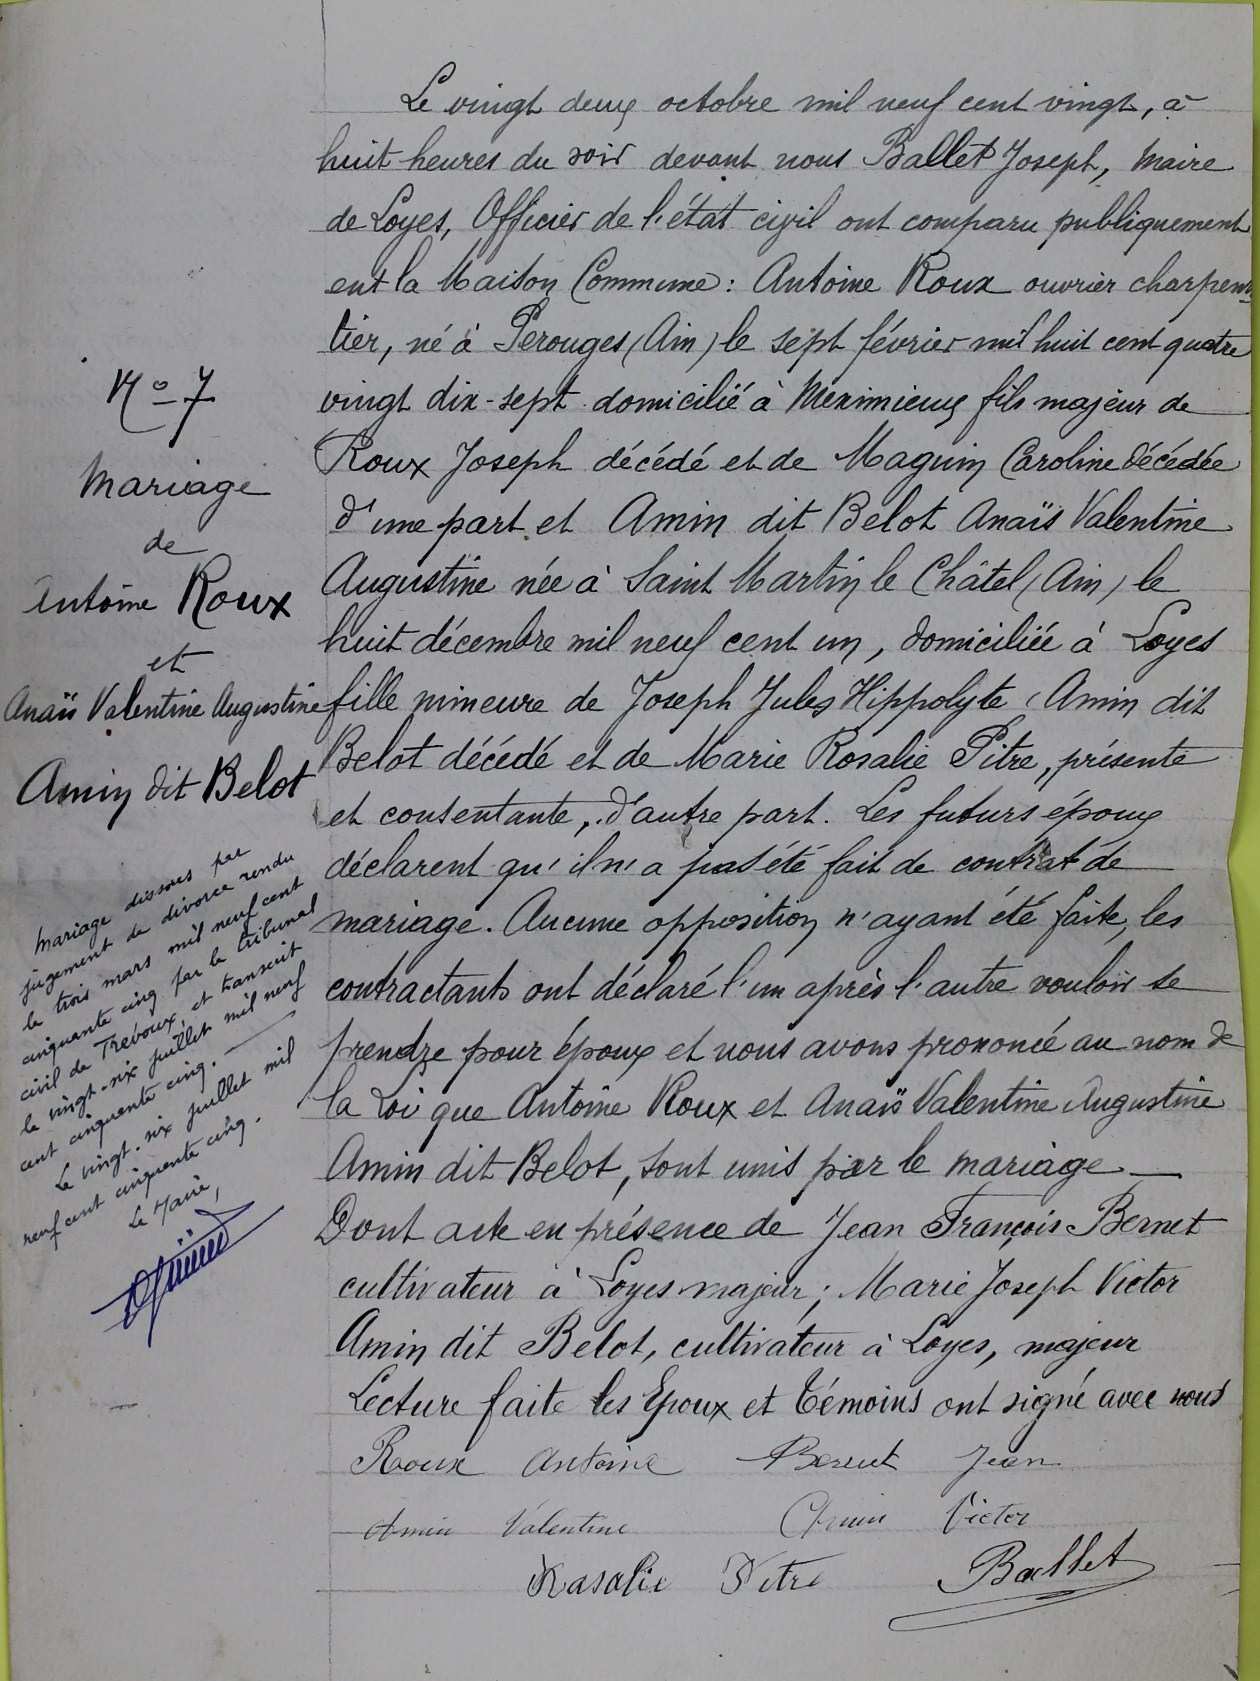 N° 7
Mariage
de
Antoine Roux
et
Anaïs Valentine Augustine
Amin dit Belot
Mariage dissous par
jugement de divorce rendu
le trois mars mil neuf cent
cinquante cinq par le tribunal
civil de Trévoux, et transcrit
le vingt-six juillet mil neuf
cent cinquante cinq.
Le vingt-six juillet mil
neuf cent cinquante cinq.
Le Maire,
Le vingt deux octobre mil neuf cent vingt, à
huit heures du soir devant nous Ballet Joseph, Maire
de Loyes, Officier de l'état civil ont comparu publiquement
ent la Maison Commune : Antoine Roux ouvrier charpen-
tier, né à Perouges (Ain) le sept février mil huit cent quatre
vingt dix-sept domicilié à Meximieux fils majeur de
Roux Joseph décédé et de Maguin Caroline décédée
d'une part et Amin dit Belot Anaïs Valentine
Augustine née à Saint Martin le Châtel (Ain) le
huit décembre mil neuf cent un, domiciliée à Loyes
fille mineure de Joseph Jules Hippolyte Amin dit
Belot décédé et de Marie Rosalie Pitre, présente
et consentante, d'autre part. Les futurs époux
déclarent qu'il n'a pas été fait de contrat de
mariage. Aucune opposition n'ayant été faite, les
contractants ont déclaré l'un après l'autre vouloir se
prendre pour époux et nous avons prononcé au nom de
la Loi que Antoine Roux et Anaïs Valentine Augustine
Amin dit Belot, sont unis par le mariage —
Dont acte en présence de Jean François Bernet
cultivateur à Loyes majeur ; Marie Joseph Victor
Amin dit Belot, cultivateur à Loyes, majeur
Lecture faite les Epoux et Témoins ont signé avec nous
Roux Antoine Bernet Jean
Amin Valentine Amin Victor
Rosalie Pitre Ballet